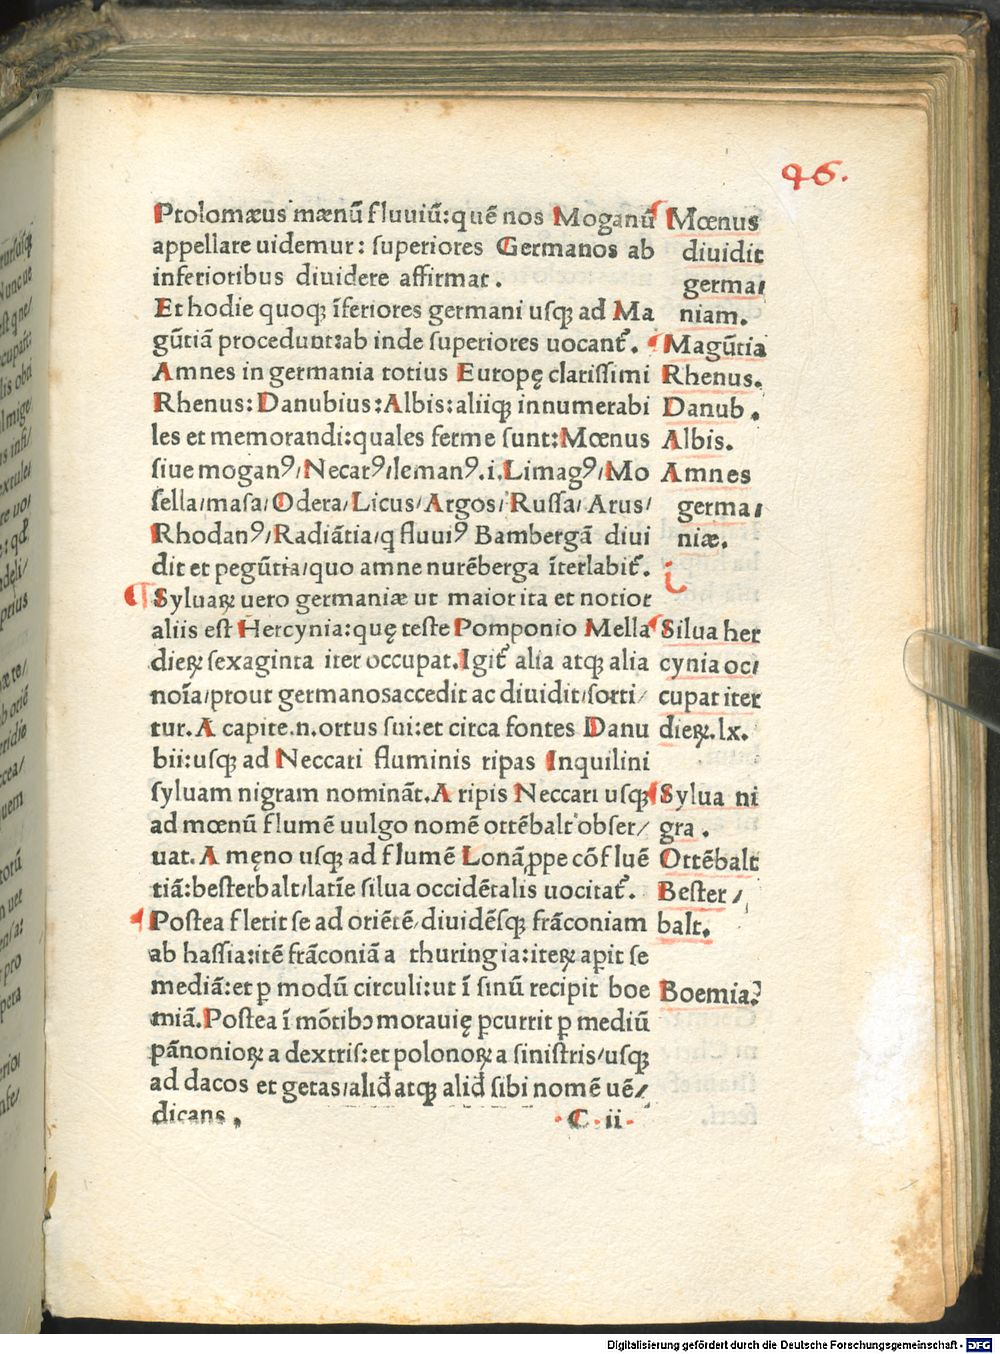 96.
Ptolomæus mænū fluuiū: quē nos Moganū
appellare uidemur: superiores Germanos ab
inferioribus diuidere affirmat.
Et hodie quoqꝫ īferiores germani usqꝫ ad Ma
gūtiā procedunt: ab inde superiores uocant᷑.
Amnes in germania totius Europę clarissimi
Rhenus: Danubius: Albis: aliiqꝫ innumerabi
les et memorandi: quales ferme sunt: Mœnus
siue mogan⁹/ Necar⁹/ leman⁹.i. Limag⁹/ Mo
sella/ masa/ Odera/ Licus/ Argos/ Russa/ Arus/
Rhodan⁹/ Radiātia/ q fluui⁹ Bambergā diui
dit et pegūtia/ quo amne nurēberga īterlabit᷑.
Syluaꝝ uero germaniæ ut maior ita et notior
aliis est Hercynia: quę teste Pomponio Mella
dieꝝ sexaginta iter occupat. Igit᷑ alia atqꝫ alia
noīa/ prout germanos accedit ac diuidit/ sorti/
tur. A capite .n. ortus sui: et circa fontes Danu
bii: usqꝫ ad Neccari fluminis ripas Inquilini
syluam nigram nomināt. A ripis Neccari usqꝫ
ad mœnū flumē uulgo nomē ottēbalt obser/
uat. A męno usqꝫ ad flumē Lonā ꝓpe cōfluē
tiā: besterbalt/ latīe silua occidētalis uocitat᷑.
Postea flectit se ad oriētē/ diuidēsqꝫ frāconiam
ab hassia: itē frāconiā a thuringia: iteꝝ apit se
mediā: et ꝑ modū circuli: ut ī sinū recipit boe
miā. Postea ī mōtibꝰ morauię ꝑcurrit ꝑ mediū
pānonioꝝ a dextris: et polonoꝝ a sinistris/ usqꝫ
ad dacos et getas/ aliđ atqꝫ aliđ sibi nomē uē/
dicans.
C ii
Mœnus
diuidit
germa/
niam.
Magūtia
Rhenus.
Danub.
Albis.
Amnes
germa/
niæ.
Silua her
cynia oc/
cupat iter
dieꝝ.lx.
Sylua ni
gra.
Ottēbalt
Bester/
balt.
Boemia.
Digitalisierung gefördert durch die Deutsche Forschungsgemeinschaft - DFG